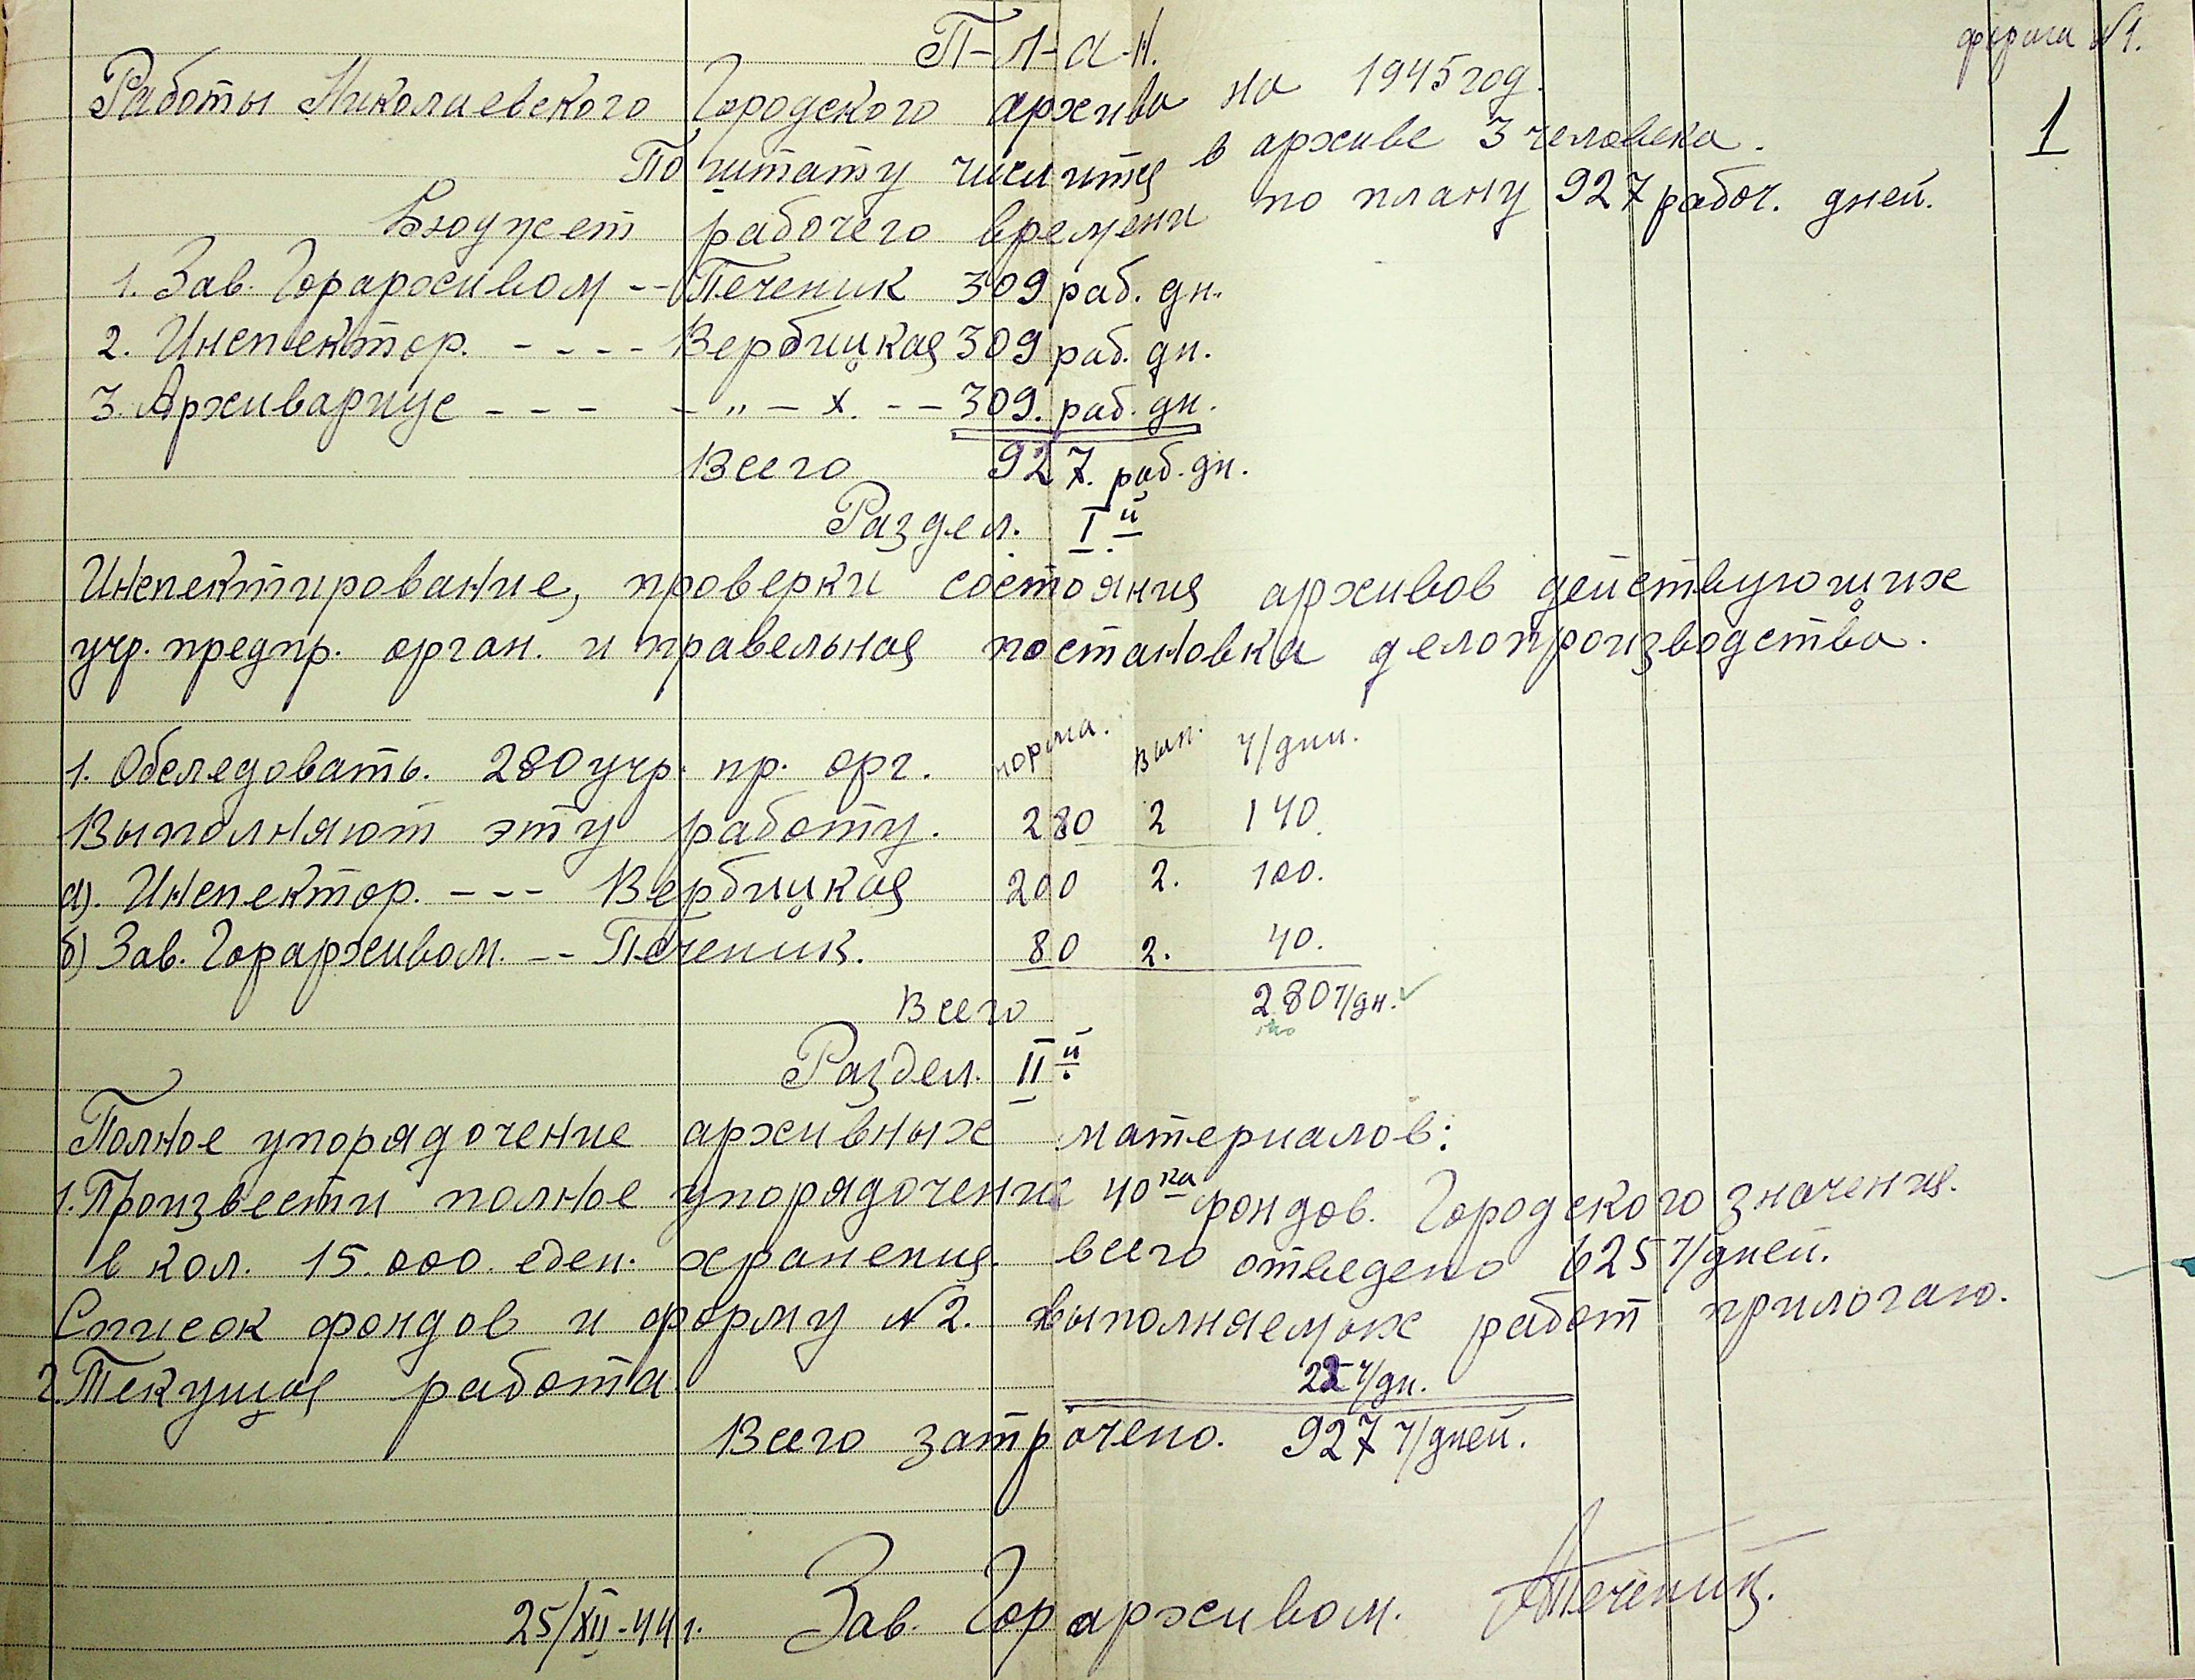 форма №1.
П-л-а-н.
Работы Николаевского Городского архива на 1945 год.
1
По штату числится в архиве 3 человека.
Бюджет рабочего времени по плану 927 рабоч. дней.
1. Зав. Горархивом -- Печеник 309 раб. дн.
2. Инспектор. - - - - Вербицкая 309 раб. дн.
3. Архивариус - - - - " - х. - - 309. раб. дн.
Всего 927. раб. дн.
Раздел. I й
Инспектирование, проверки состояния архивов действующих
учр. предпр. орган. и правельная постановка делопроизводства.
норма. вып. ч/дни.
1. Обследовать. 280 учр. пр. орг.
Выполняют эту работу. 280 2 140.
а). Инспектор. - - - Вербицкая 200 2. 100.
б) Зав. Горархивом. -- Печеник. 80 2. 40.
Всего 280 ч/дн.
Раздел. II й
Полное упорядочение архивных материалов:
1. Произвести полное упорядочение 40 ка фондов. Городского значения.
в кол. 15.000. еден. хранения. всего отведено 625 ч/дней.
Список фондов и форму №2. выполняемых работ прилогаю.
2. Текущая работа. 22 ч/дн.
Всего затрочено. 927 ч/дней.
25/XII-44 г. Зав. Горархивом. Печеник.